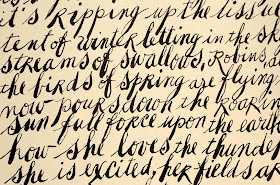 it's ripping up the tissue
tent of winter letting in the sk
streams of swallows, Robins, a
the birds of spring are flying
now pours down the roaring
sun full force upon the earth
how she loves the thunder
she is excited, her fields ar